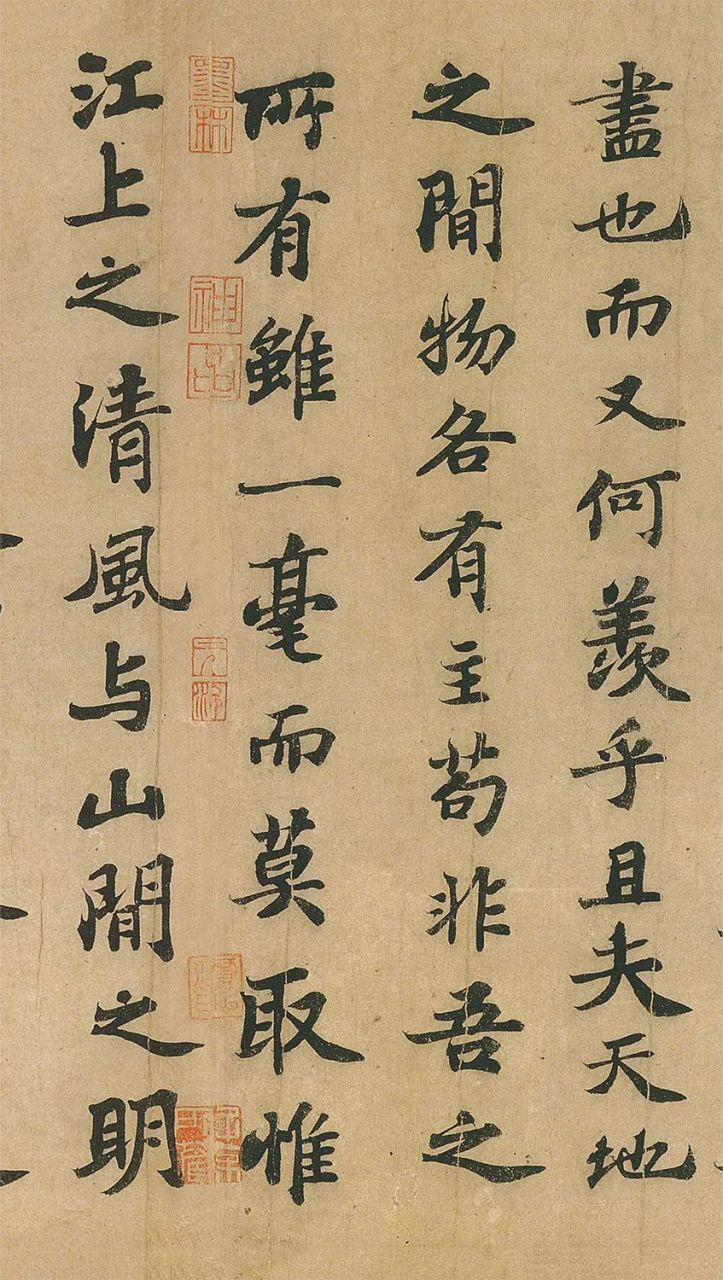 盡也而又何羨乎且夫天地
之間物各有主苟非吾之
所有雖一毫而莫取惟
江上之清風与山間之明
墨林
神品
元汴